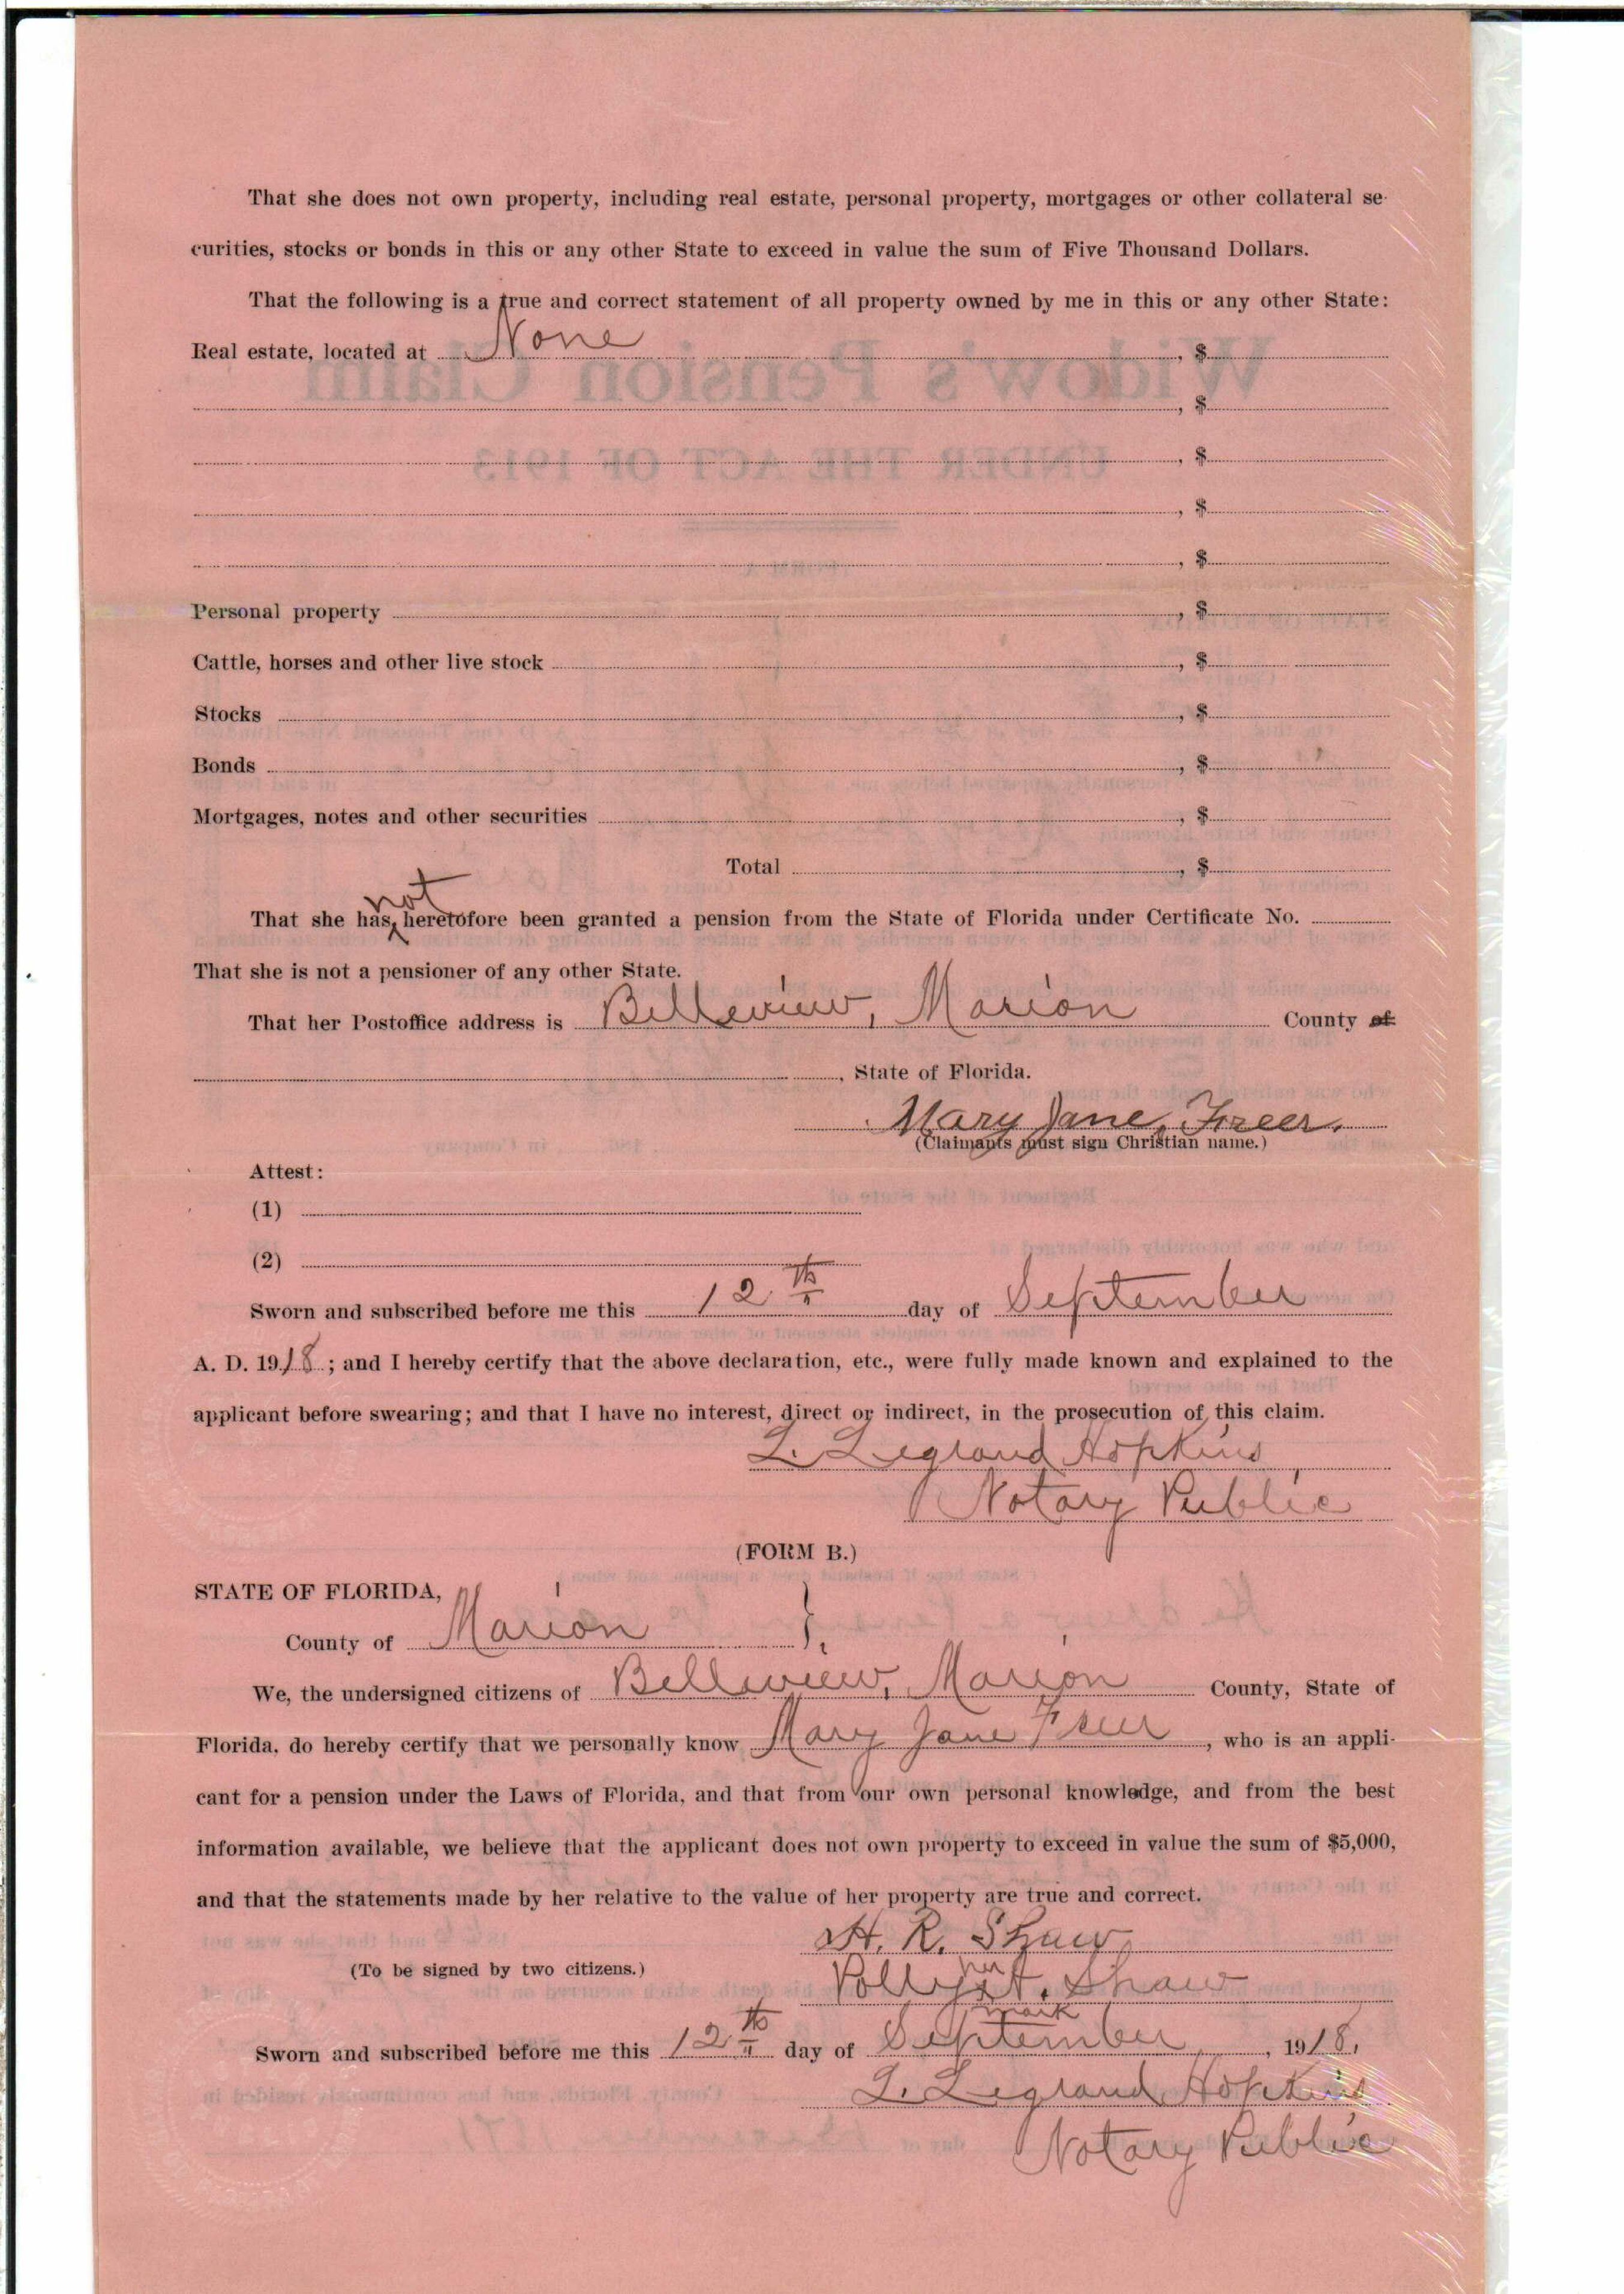 That she does not own property, including real estate, personal property, mortgages or other collateral se-
curities, stocks or bonds in this or any other State to exceed in value the sum of Five Thousand Dollars.
That the following is a true and correct statement of all property owned by me in this or any other State:
Real estate, located at None , $
, $
, $
, $
, $
Personal property , $
Cattle, horses and other live stock , $
Stocks , $
Bonds , $
Mortgages, notes and other securities , $
Total , $
not
That she has, heretofore been granted a pension from the State of Florida under Certificate No.
That she is not a pensioner of any other State.
That her Postoffice address is Belleview, Marion County of
, State of Florida.
Mary Jane, Freer.
(Claimants must sign Christian name.)
Attest:
(1)
(2)
Sworn and subscribed before me this 12th day of September
A. D. 1918; and I hereby certify that the above declaration, etc., were fully made known and explained to the
applicant before swearing; and that I have no interest, direct or indirect, in the prosecution of this claim.
L. Legrand Hopkins
Notary Public
(FORM B.)
STATE OF FLORIDA,
County of Marion }.
We, the undersigned citizens of Belleview, Marion County, State of
Florida, do hereby certify that we personally know Mary Jane Freer, who is an appli-
cant for a pension under the Laws of Florida, and that from our own personal knowledge, and from the best
information available, we believe that the applicant does not own property to exceed in value the sum of $5,000,
and that the statements made by her relative to the value of her property are true and correct.
H. R. Shaw
her
(To be signed by two citizens.) Polly x A. Shaw
mark
Sworn and subscribed before me this 12th day of September, 1918.
L. Legrand Hopkins
Notary Public